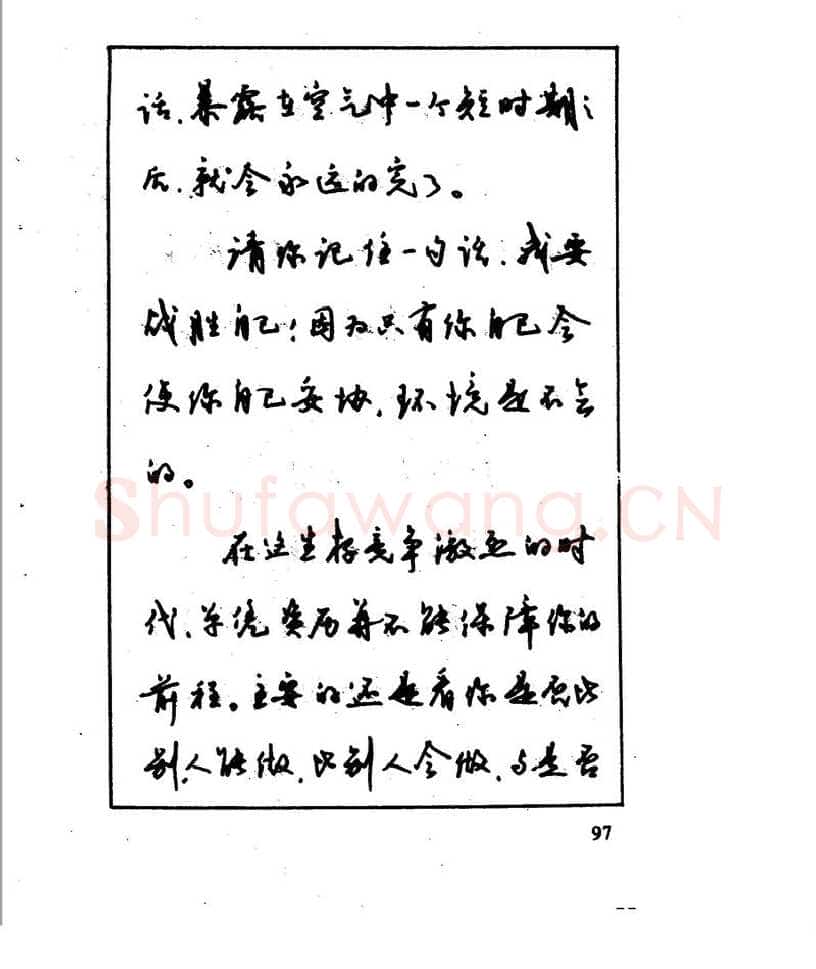 话、暴露在空气中一个短时期之
后、就会永远的完了。
请你记住一句话、我要
战胜自己！因为只有你自己会
使你自己妥协，环境是不会
的。
在这生存竞争激烈的时
代、单凭资历并不能保障你的
前程。主要的还是看你是否比
别人能做，比别人会做，与是否
97
Shufawang.CN